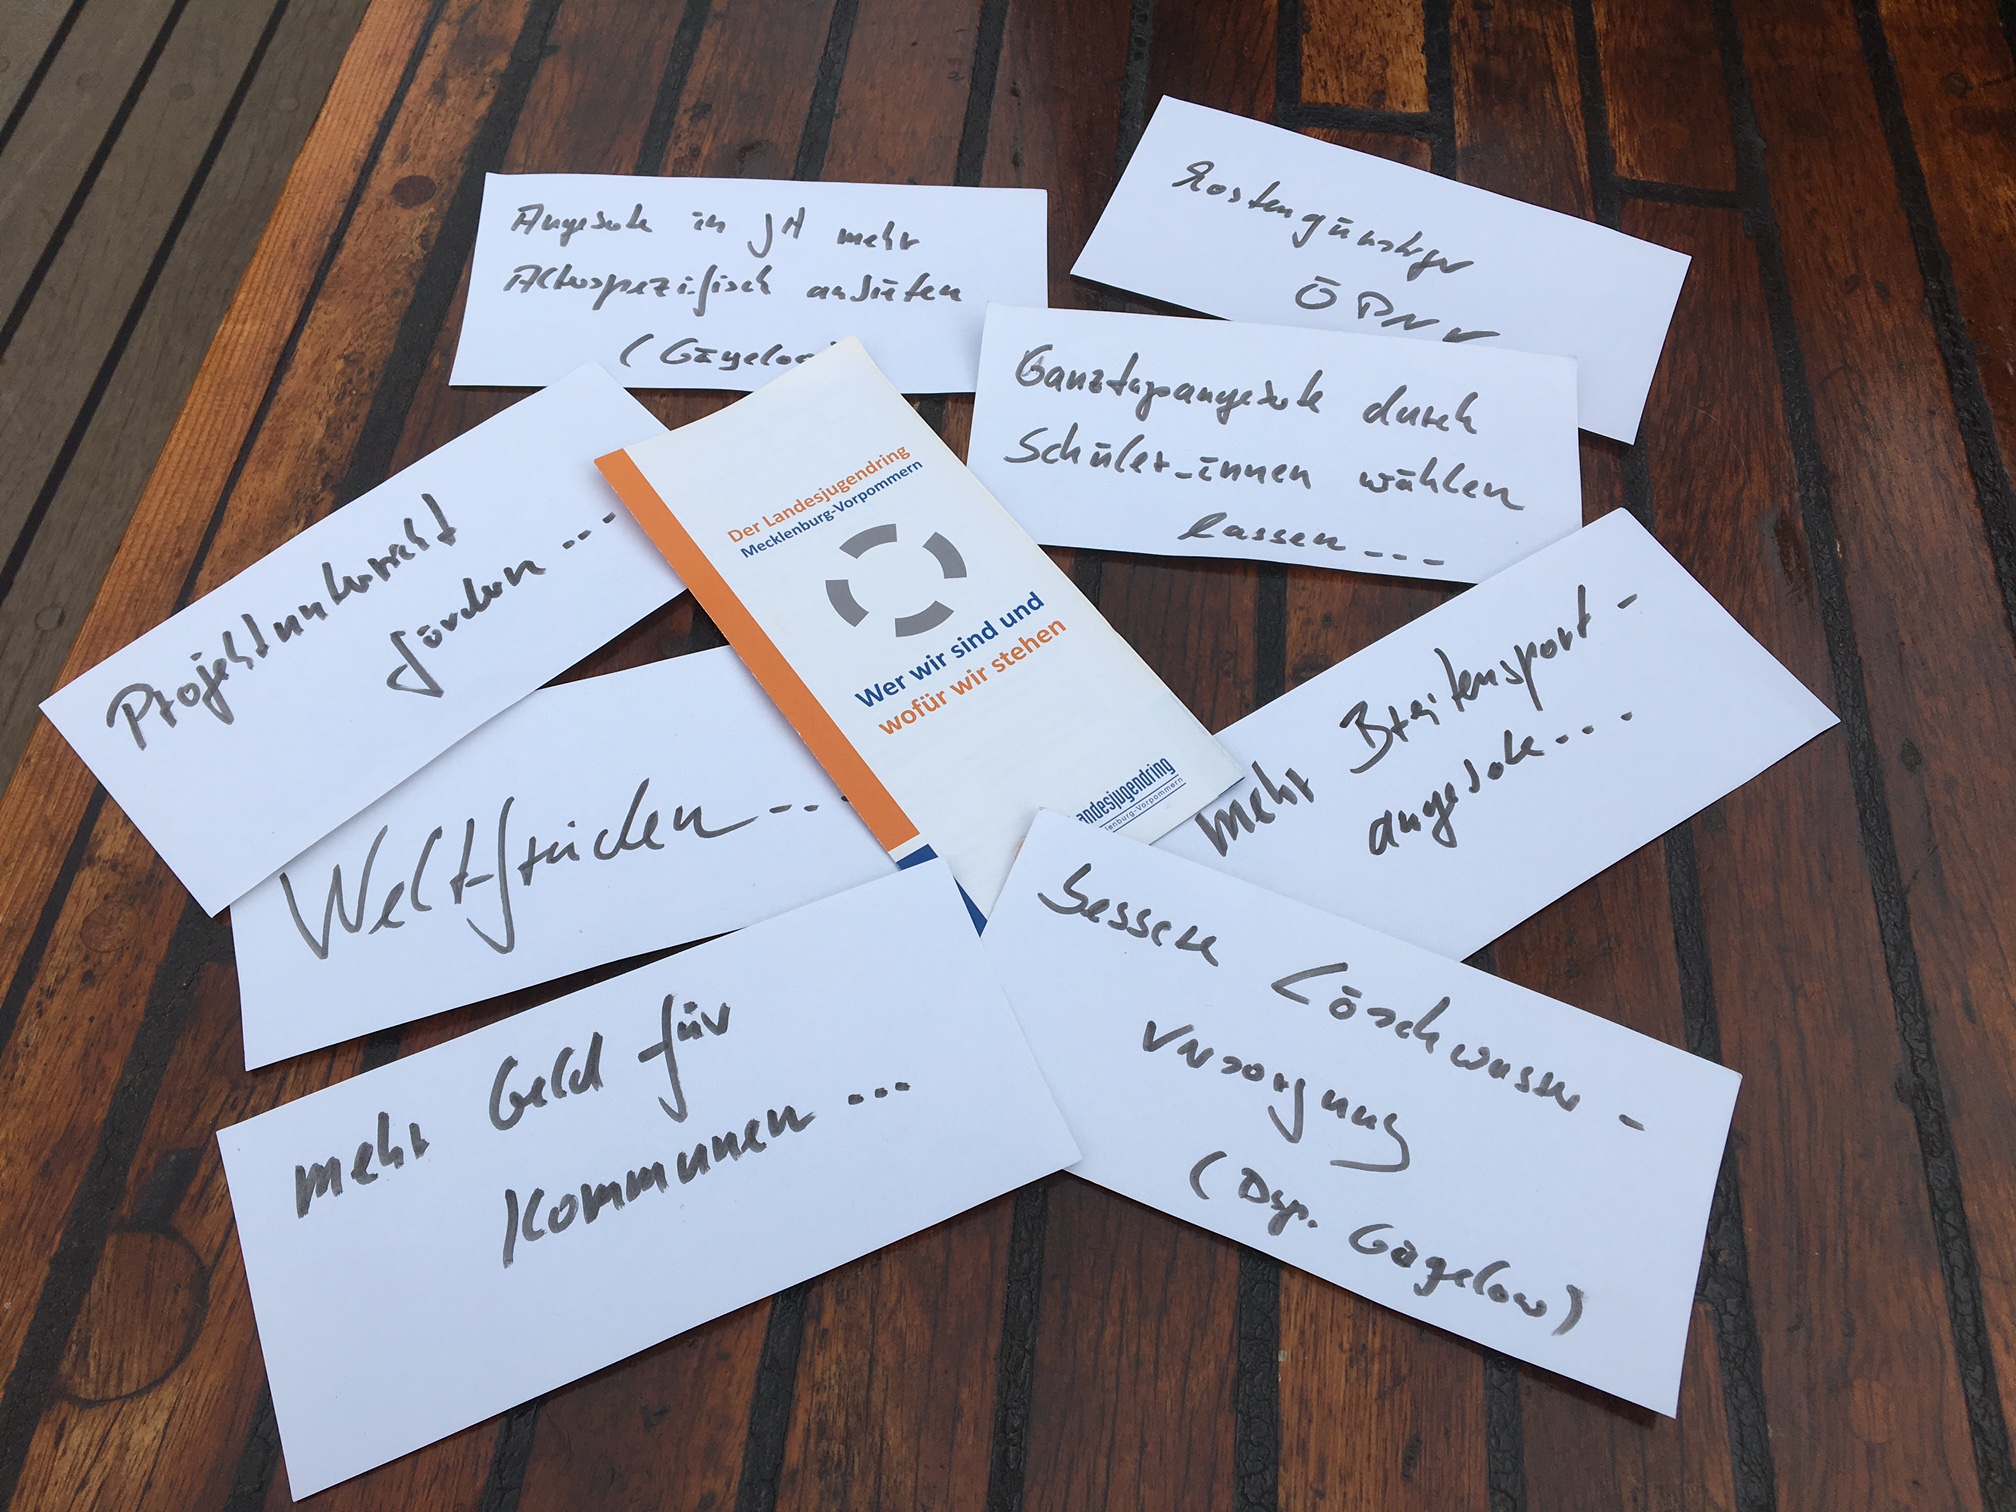 Angebote in JH mehr
Altersspezifisch anbieten
(Gägelow
Kostengünstiger
ÖPNV
Ganztagsangebote durch
Schüler_innen wählen
lassen ---
Projektunterricht
fördern ...
Der Landesjugendring
Mecklenburg-Vorpommern
Wer wir sind und
wofür wir stehen
andesjugendring
lenburg-Vorpommern
mehr Breitensport-
angebote....
Weltfrieden ...
bessere Löschwasser-
versorgung
(Dsp. Gägelow)
mehr Geld für
Kommunen ...